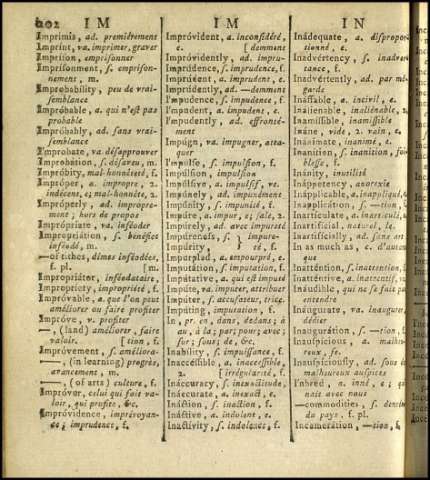 202 IM IM IN
Imprimis, ad. premiérement
Imprint, va. imprimer, graver
Imprison, emprisonner
Imprisonment, s. emprison-
nement, m.
Improbability, peu de vrai-
semblance
Impróbable, a. qui n'est pas
probable
Impróbably, ad. sans vrai-
semblance
I'mprobate, va. désapprouver
Improbátion, s. désaveu, m.
Impróbity, mal-honnêteté, f.
Impróper, a. impropre, 2.
indécent, e; mal-honnête, 2.
Impróperly, ad. impropre-
ment; hors de propos
Imprópriate, va. inféoder
Impropriátion, s. bénéfice
inféodé, m.
—of tithes, dimes inféodées,
f. pl. [m.
Impropriátor, inféodataire,
Impropriety, impropriété, f.
Impróvable, a. que l'on peut
améliorer ou faire profiter
Impróve, v. profiter
—, (land) améliorer, faire
valoir. [tion, f.
Impróvement, s. améliora-
—, (in learning) progrès,
avancement, m.
—, (of arts) culture, f.
Impróver, celui qui fait va-
loir, qui profite, &c.
Impróvidence, imprévoyan-
ce; imprudence, f.
Impróvident, a. inconsidéré,
e. [demment
Impróvidently, ad. impru-
Imprúdence, s. imprudence, f.
Imprúdent, a. imprudent, e.
Imprúdently, ad. —demment
I'mpudence, s. impudence, f.
I'mpudent, a. impudent, e.
I'mpudently, ad. effronté-
ment
Impúgn, va. impugner, atta-
quer
I'mpulse, s. impulsion, f.
Impúlsion, impulsion
Impúlsive, a. impulsif, ve.
Impúnely, ad. impunément
Impúnity, s. impunité, f.
Impúre, a. impur, e; sale, 2.
Impúrely, ad. avec impureté
Impúreness, s. impure-
Impúrity, té, f.
Impúrpled, a. empourpré, e.
Imputátion, s. imputation, f.
Impútative, a. qui est imputé
Impúte, va. imputer, attribuer
Impúter, s. accusateur, trice.
Impúting, imputation, f.
In, pr. en, dans, dedans; à
au, à la; par; pour; avec;
sur; sous; de, &c.
Inability, s. impuissance, f.
Inaccéssible, a. inaccessible,
2. [irrégularité, f.
Ináccuracy, s. inexactitude,
Ináccurate, a. inexact, e.
Ináction, s. inaction, f.
Ináctive, a. indolent, e.
Inactívity, s. indolence, f.
Inádequate, a. dispropor-
tionné, e.
Inadvértency, s. inadver-
tance, f.
Inadvértently, ad. par mé-
garde
Ináffable, a. incivil, e.
Ináliénable, inaliénable, 2.
Inamíssible, inamissible
Ináne, vide, 2. vain, e.
Inánimate, inanimé, e.
Inanítion, s. inanition, foi-
blesse, f.
Inánity, inutilité
Ináppetency, anorexie
Ináplicable, a. inappliqué,
Inapplicátion, s. —tion, f.
Inartículate, a. inarticulé,
Inartifícial, naturel, le.
Inartifícially, ad. sans art
In as much as, c. d'autant
que
Inatténtion, s. inattention,
Inatténtive, a. inattentif,
Ináudible, qui ne se fait pas
entendre
Ináugurate, va. inaugurer,
dédier
Inaugurátion, s. —tion, f.
Inauspícious, a. malheu-
reux, se.
Inauspíciously, ad. sous de
malheureux auspices
I'nbred, a. inné, e;
nait avec nous
—commodities, s. denrées
du pays, f. pl.
Incamerátion, —tion, f.